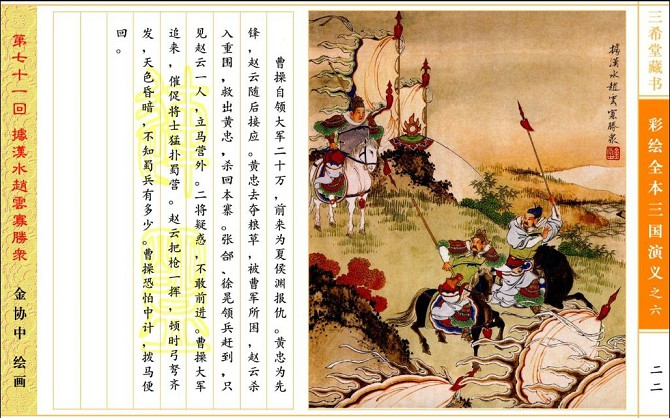 三希堂藏书
彩绘全本三国演义之六
二二
據漢水趙雲寡勝衆
曹操自领大军二十万，前来为夏侯渊报仇。黄忠为先
锋，赵云随后接应。黄忠去夺粮草，被曹军所困，赵云杀
入重围，救出黄忠，杀回本寨。张郃、徐晃领兵赶到，只
见赵云一人，立马营外。二将疑惑，不敢前进。曹操大军
追来，催促将士猛扑蜀营。赵云把枪一挥，顿时弓弩齐
发，天色昏暗，不知蜀兵有多少。曹操恐怕中计，拨马便
回。
第七十一回 據漢水趙雲寡勝衆
金协中 绘画